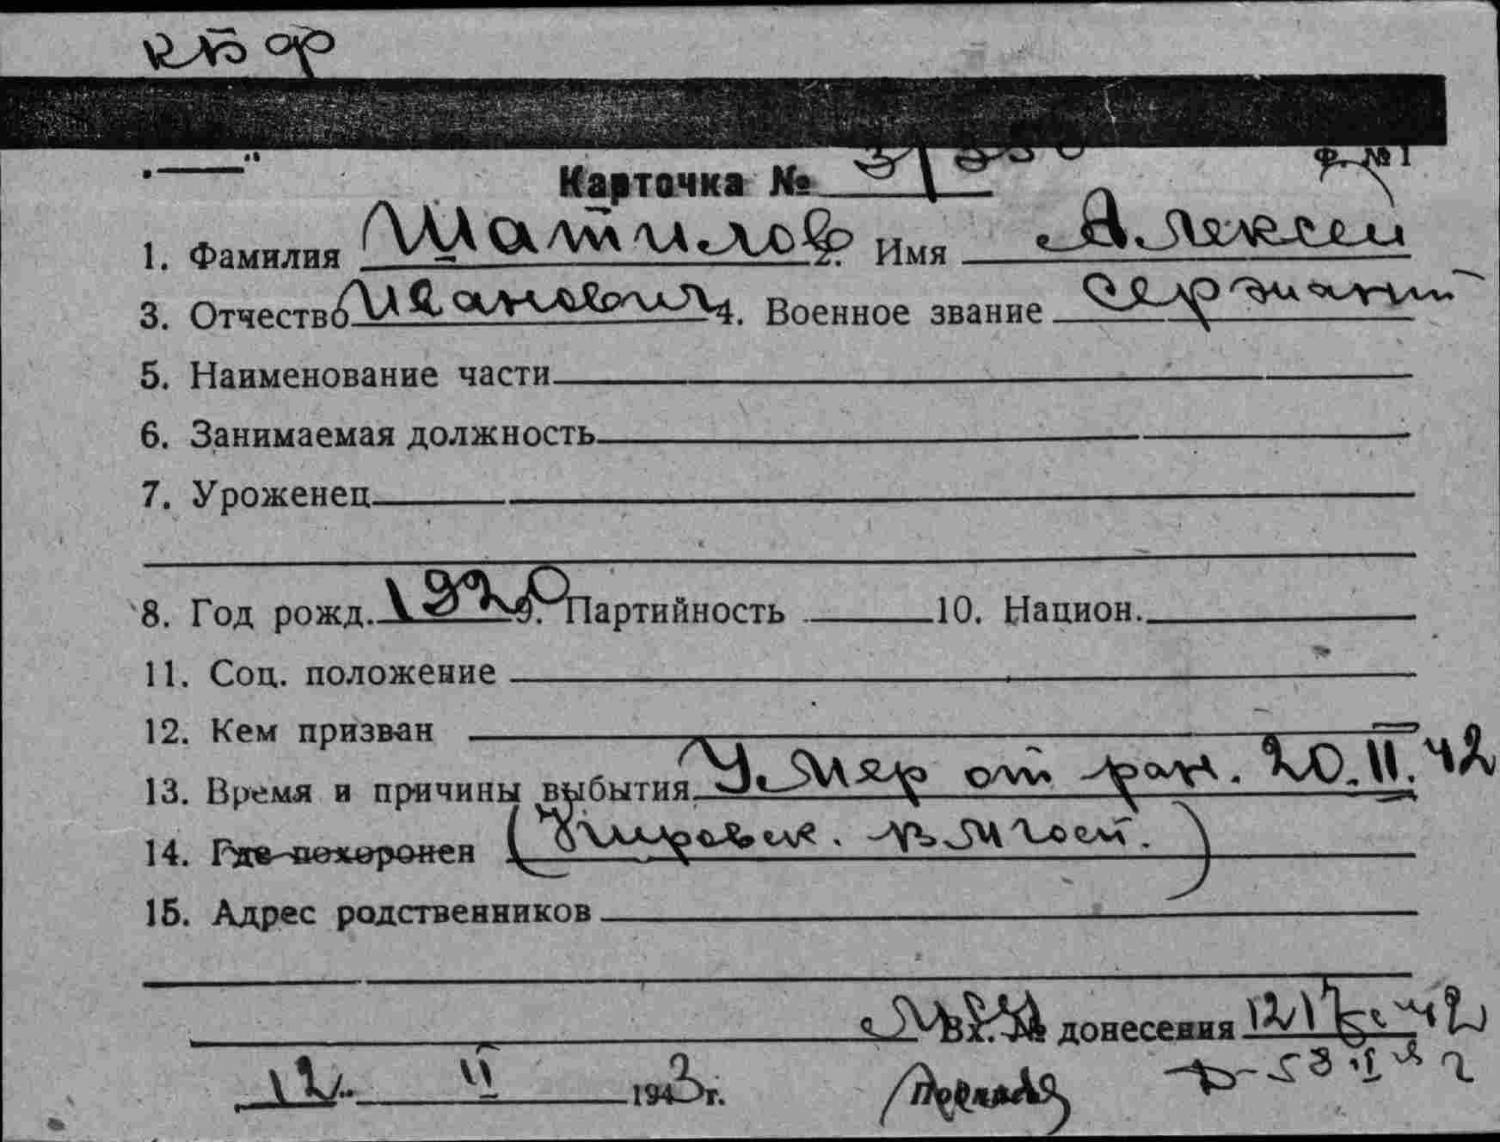 КБФ
Карточка №
Ф. № 1
1. Фамилия Шатилов 2. Имя Алексей
3. Отчество Иванович 4. Военное звание сержант
5. Наименование части
6. Занимаемая должность
7. Уроженец
8. Год рожд. 1920 9. Партийность 10. Национ.
11. Соц. положение
12. Кем призван
13. Время и причины выбытия Умер от ран. 20.II.42
14. Где похоронен (Кировск. в.м госп.)
15. Адрес родственников
Вх. № донесения
12 II 1943 г.